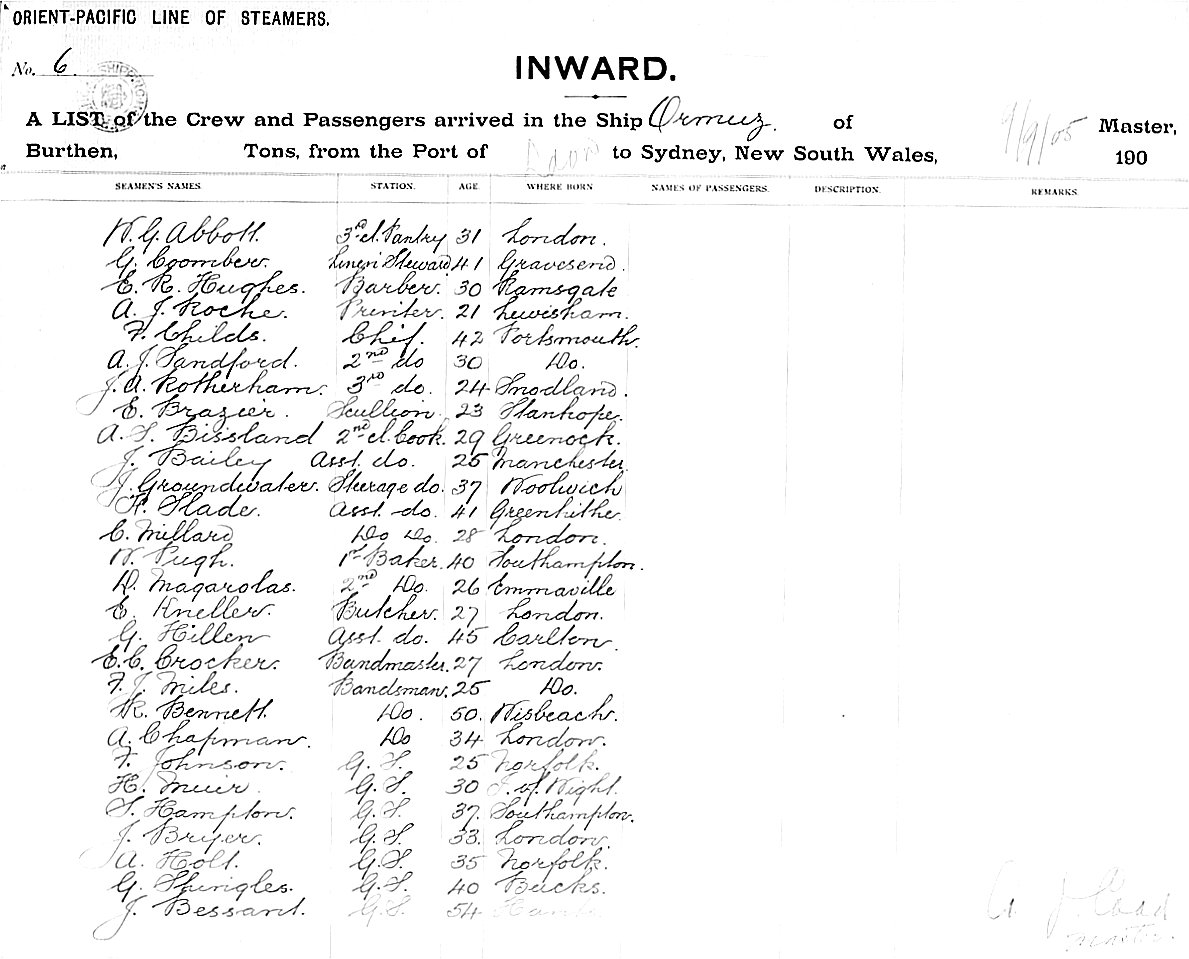 ORIENT-PACIFIC LINE OF STEAMERS.
No. 6.
INWARD.
A LIST of the Crew and Passengers arrived in the Ship Ormuz. of 9/9/05 Master,
Burthen, Tons, from the Port of to Sydney, New South Wales, 190
SEAMEN'S NAMES STATION. AGE. WHERE BORN NAMES OF PASSENGERS. DESCRIPTION. REMARKS.
W. G. Abbott. 3rd cl. Pantry 31 London.
G. Coomber. Linen Steward 41 Gravesend.
E. R. Hughes. Barber. 30 Ramsgate
A. J. Roche. Printer. 21 Lewisham.
F. Childs. Chef. 42 Portsmouth.
A. J. Sandford. 2nd do 30 Do.
J. A. Rotherham. 3rd do. 24 Snodland.
E. Brazier. Scullion. 23 Stanhope.
A. S. Bissland 2nd cl. Cook. 29 Greenock.
J. Bailey Asst. do. 25 Manchester.
J. Groundwater. Steerage do. 37 Woolwich
H. Slade. Asst. do. 41 Greenhithe.
C. Millard Do Do. 28 London.
W. Pugh. 1st Baker. 40 Southampton.
D. Magarolas. 2nd Do. 26 Emmaville
E. Kneller. Butcher. 27 London.
G. Hillen Asst. do. 45 Carlton.
E. C. Crocker. Bandmaster. 27 London.
F. J. Miles. Bandsman. 25 Do.
W. Bennett. Do. 50. Wisbeach.
A. Chapman. Do 34 London.
F. Johnson. G. S. 25 Norfolk.
H. Muir. G. S. 30 I. of Wight.
S. Hampton. G. S. 37. Southampton.
J. Bryer. G. S. 33. London.
A. Holt. G. S. 35 Norfolk.
G. Shingles. G. S. 40 Bucks.
J. Bessant. G. S. 54 Hants
A. J. Coad
Master.